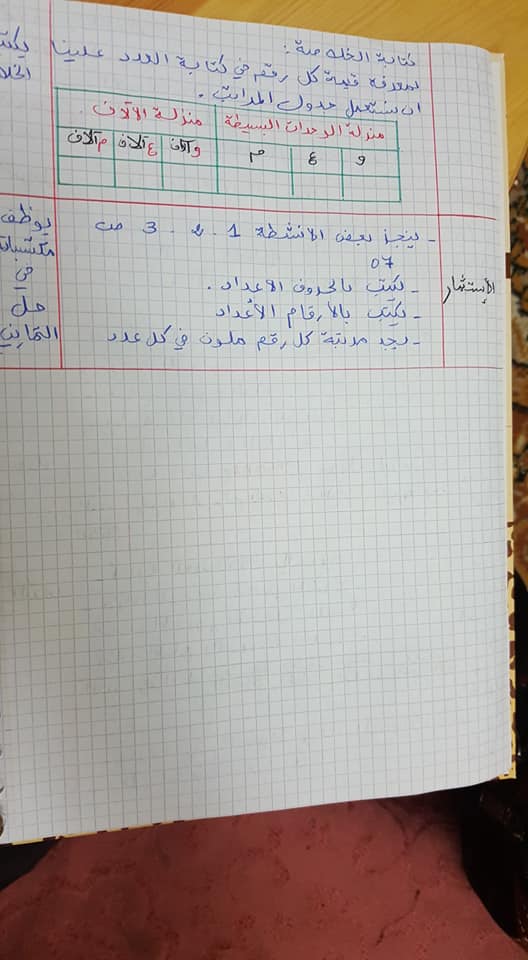 كتابة الخلاصة :
لمعرفة قيمة كل رقم في كتابة العدد علينا
ان نستعمل جدول المراتب .
منزلة الوحدات البسيطة منزلة الآلاف
و ع م و آلاف ع آلاف م آلاف
الإستثمار
- ينجز بعض الانشطة 1 . 2 . 3 ص
07
- يكتب بالحروف الاعداد .
- يكتب بالأرقام الأعداد
- يجد مرتبة كل رقم ملون في كل عدد
يوظف
مكتسباته
في
حل
التمارين